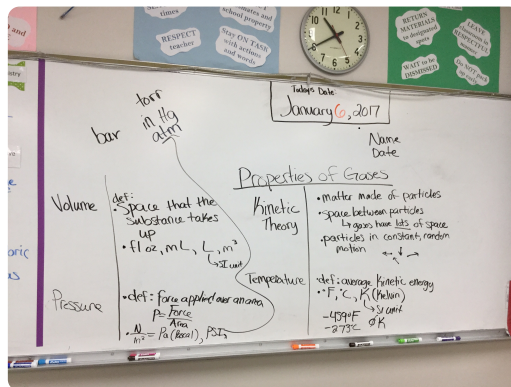 RESPECT
teacher
school property
Stay ON TASK
with actions
and words
RETURN
MATERIALS
to designated
spots
LEAVE
classroom
RESPECTFUL
WAIT to be
DISMISSED
Do NOT pack
up early
Today's Date
January 6, 2017
Name
Date
torr
in Hg
bar
atm
Properties of Gases
Volume
def:
• Space that the
substance takes
up
• fl oz, mL, L, m³
↳ SI unit
Pressure
• def: force applied over an area
P = Force
Area
• N
m² = Pa (Pascal), PSI,
Kinetic
Theory
• matter made of particles
• space between particles
↳ gases have lots of space
• particles in constant, random
motion
Temperature
• def: average kinetic energy
• °F, °C, K (Kelvin)
↳ SI unit
-459°F
-273°C
0K